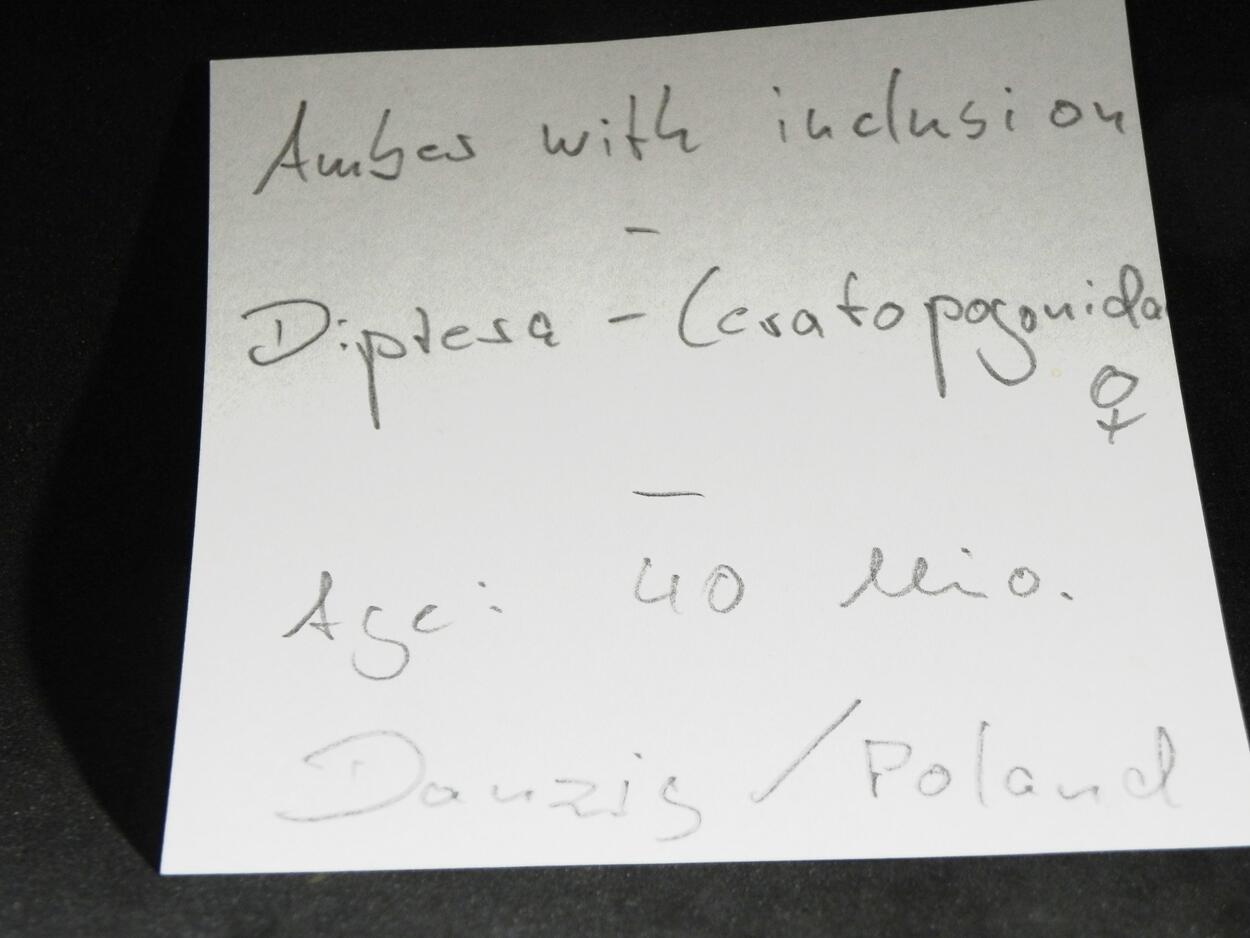 Amber with inclusion
-
Diptera - Ceratopogonida
♀
—
Age: 40 Mio.
Danzig / Poland